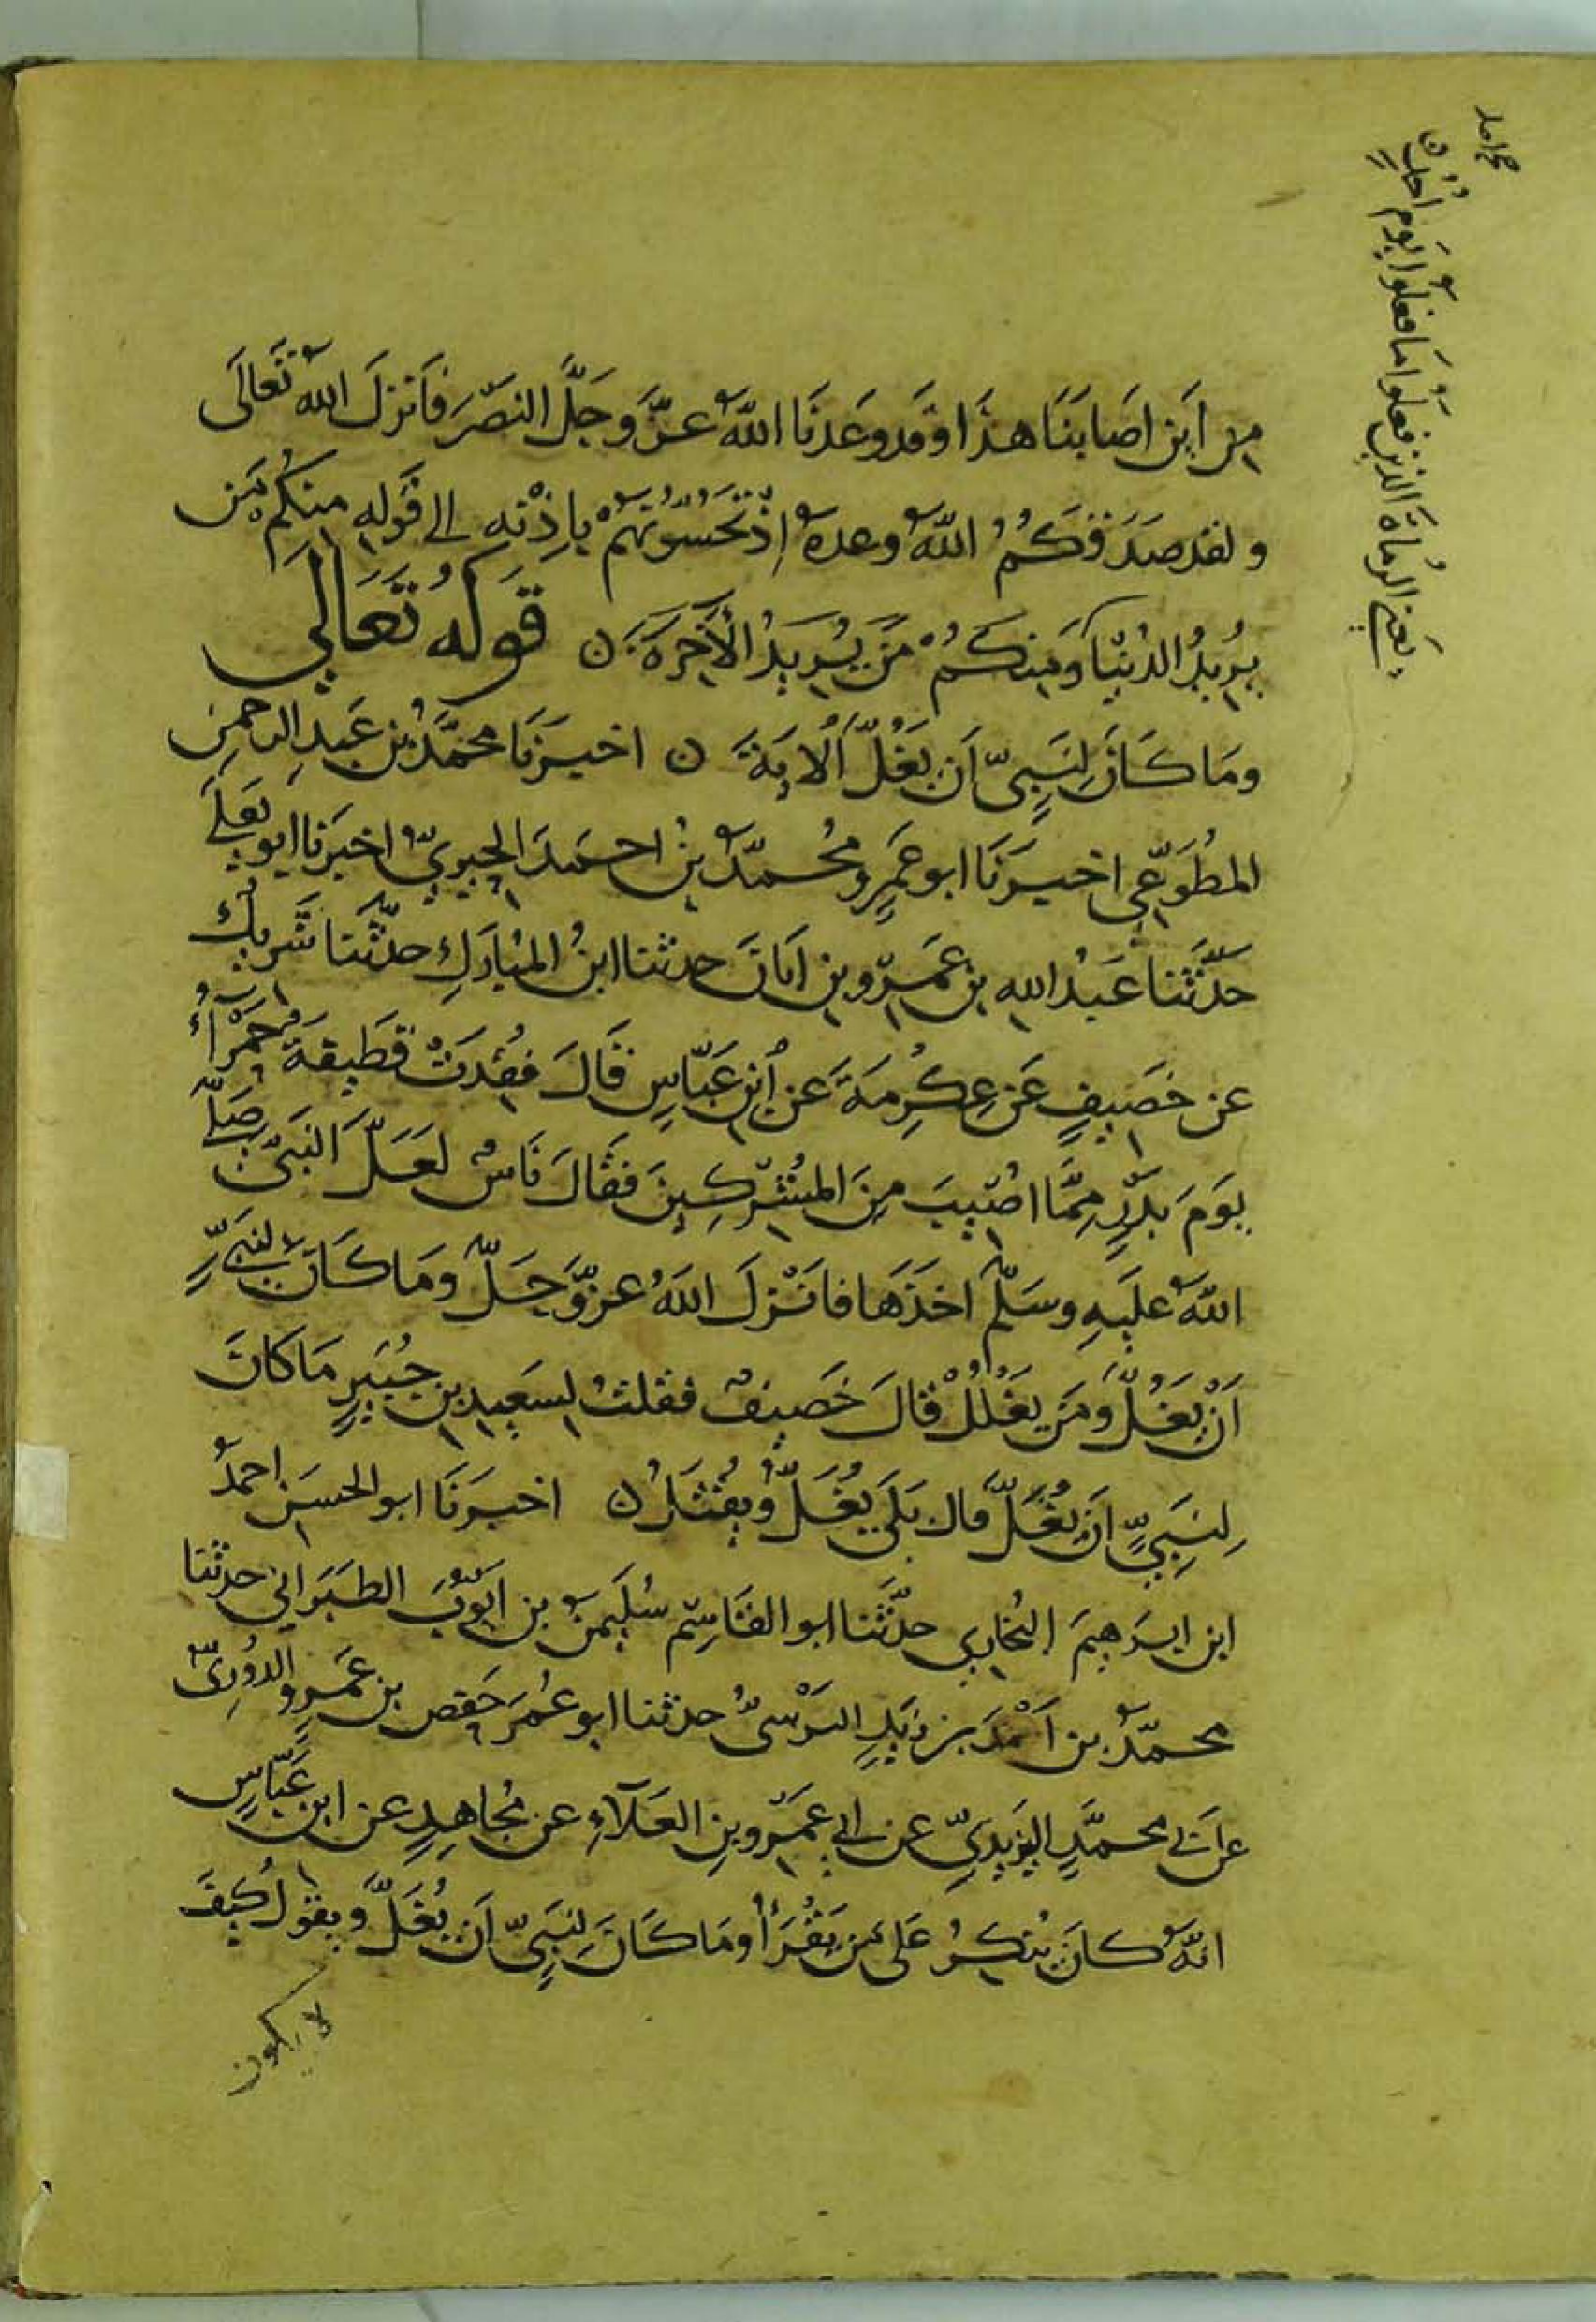 من اَين اصَابَنَا هذَا وَقد وَعَدنَا اللهُ عزَّ وَجَلَّ النصْرَ فَاَنزلَ اللهُ تَعَالَى
ولقد صَدَقَكُمُ اللهُ وعدهُ اِذْ تَحُسُّونَهُمْ بِاِذْنِهِ الى قَولِهِ مِنكُم مَن
يُرِيدُ الدُنْيَا وَمِنكُمْ مَن يُرِيدُ الآخِرَةَ ن قَولُهُ تَعَالَى
وَمَا كَانَ لِنَبِيٍّ اَن يَغُلَّ الايَةَ ن اخبرَنَا محمَّدُ بن عَبدِ الرحمن
المطَّوّعي اخبرَنَا ابو عَمرٍو محمدُ بنُ احمَدَ الحِيريّ اخبَرَنا ابو يَعلَى
حَدَّثنا عَبدُ اللهِ بن عَمرو بن اَبانَ حدثنا ابنُ المبَارَكِ حدّثنا شَريكُ
عن خَصِيفٍ عَن عِكرِمَةَ عَن ابنِ عَبّاسٍ قَالَ فُقِدَتْ قَطِيفَةٌ حَمْرَاءُ
يَومَ بَدْرٍ مِمَّا اُصِيبَ مِنَ المشرِكِينَ فَقَالَ نَاسٌ لَعَلَّ النَبيّ صَلى
اللهُ عَلَيهِ وسَلّمَ اخَذَهَا فَاَنْزلَ اللهُ عزّ وَجَلّ ومَا كَانَ لِنَبيٍّ
اَنْ يَغُلَّ وَمَن يَغْلُلْ قالَ خَصِيفٌ فقلتُ لسَعِيدِ بن جُبَيرٍ مَا كَانَ
لِنَبيٍّ اَن يُغَلَّ قالَ بَلَى يُغَلُّ وَيُقْتَلُ ن اخبرَنَا ابو الحسَن احمدُ
ابن ابرَهِيمَ النجّاري حدَّثَنا ابو القَاسِم سُلَيمنُ بن ايّوبَ الطبَرَاني حدثنا
محمّدُ بن اَحْمَدَ بن يَزِيدٍ النَرْسيُّ حدثنا ابو عُمَرَ حَفص بن عَمرٍو الدُوريّ
عن اَبي محمَّدٍ اليَزِيديِّ عن ابي عَمرو بنِ العَلاءِ عن مُجاهِدٍ عن ابن عَبّاسٍ
انّهُ كانَ يُنكِرُ عَلى مَن يَقْرَأُ ومَا كَانَ لِنَبيٍّ اَن يُغَلَّ وَيقولُ كَيفَ
لا يكون
يَعنى الرُماةَ الذين فعَلُوا مَا فعَلُوا يَومَ اُحُدٍ